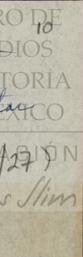 RO DE
10
DIOS
TORIA
XICO
ASIÓN
/27)
s Slim